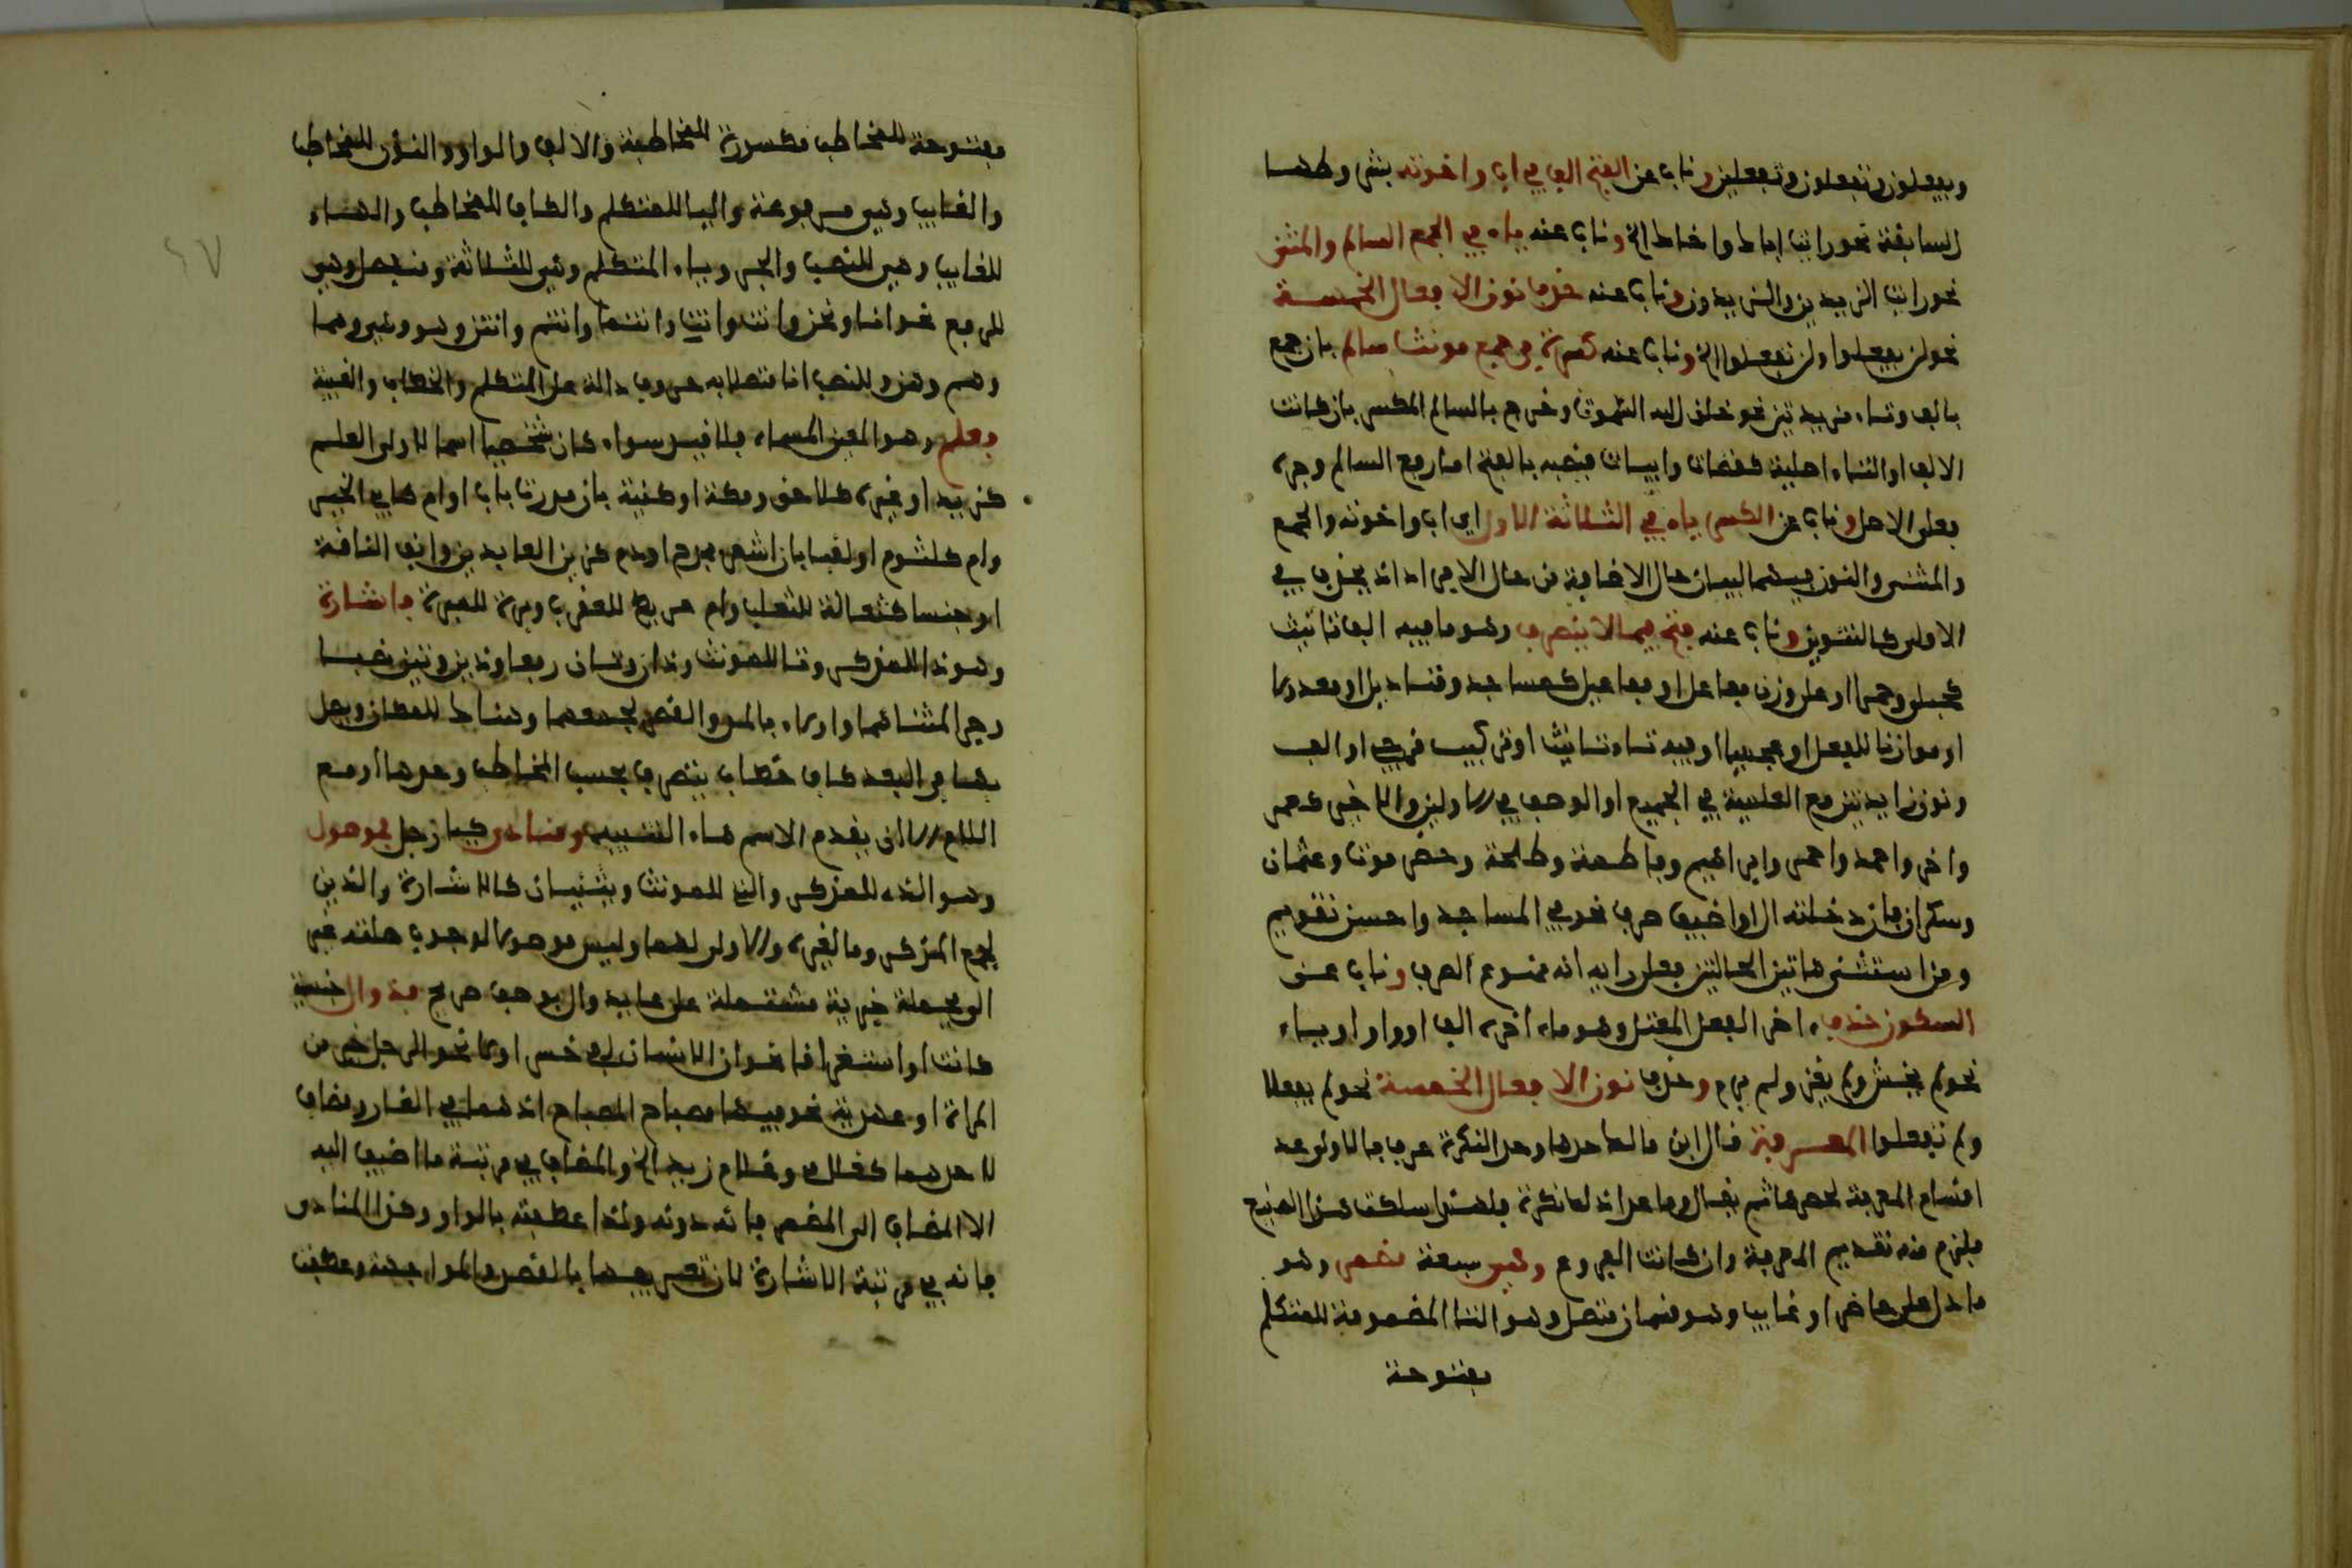 ويفعلون وتفعلون وتفعلين وناب عن الفتح الف في اب واخوته بشروطها
السابقة نحو رايت اباك واخاك الخ وناب عنه ياء في الجمع السالم والمثنى
نحو رايت الزيدين والزيدون وناب عنه حذف نون الافعال الخمسة
نحو لن يفعلوا ولن تفعلوا الخ وناب عنه كسرة في جمع مونث سالم بان جمع
بالف وتاء مزيدتين نحو خلق الله السموت وخرج بالسالم المكسر بان كانت
الالف او التاء اصلية كقضاة وابيات فنصبه بالفتح اما رفع السالم وجره
فعلى الاصل وناب عن الكسر ياء في الثلاثة الاول اي اب واخوته والجمع
والمثنى والنون فيهما لبيان حال الاضافة من حال الافراد اذ يحذف في
الاولى كالتنوين وناب عنه فتح فيما لا ينصرف وهو ما فيه الف تانيث
كحبلى وحمرا او على وزن مفاعل او مفاعيل كمساجد وقناديل او معدولا
او موازنا للفعل او عجميا او فيه تاء تانيث او تركيب مزجي او الف
ونون زايدتين مع العلمية في الجميع او الوصف في الاولين والاخير كعمر
واخر واحمد واحمر وابراهيم وفاطمة وطلحة وحضرموت وعثمان
وسكران فان دخلته ال او اضيف صرف نحو في المساجد واحسن تقويم
ومن استثنى هاتين الحالتين فعلى رايه انه ممنوع الصرف وناب عن
السكون حذف اخر الفعل المعتل وهو ما اخره الف او واو او ياء
نحو لم يخش ولم يغز ولم يرم وحذف نون الافعال الخمسة نحو لم يفعلا
ولم تفعلوا المعرفة قال ابن مالك حدها وحد النكرة عسر فالاولى عد
اقسام المعرفة لحصرها ثم يقال وما عدا ذلك نكرة فلهذا سلكت هذا الصنيع
فلزم منه تقديم المعرفة وان كانت الفروع وهي سبعة مضمر وهو
ما دل على حاضر او غايب وهو قسمان متصل وهو التا المضمومة للمتكلم
مفتوحة
مفتوحة للمخاطب مكسورة للمخاطبة والالف والواو والنون للمخاطب
والغايب وهي مرفوعة واليا للمتكلم والكاف للمخاطب والهاء
للغايب وهي للنصب والجر وياء المتكلم وهي للثلاثة ومنفصل وهي
للرفع نحو انا ونحن وانت وانت وانتما وانتم وانتن وهو وهي وهما
وهم وهن وللنصب ايا متصلا به حروف دالة على المتكلم والخطاب والغيبة
فعلم وهو المعين المسماه بلا قيد سواء كان شخصيا اسما لاولى العلم
كزيد او غيره كلاحق ومكة او كنية بان صدرت باب او ام كابي الخير
وام كلثوم او لقبا بان اشعر بمدح او ذم كزين العابدين وانف الناقة
او جنسا كثعالة للثعلب وام عريط للعقرب وبرة للمبرة فاشارة
وهو ذا للمذكر وتا للمونث وذان وتان رفعا وذين وتين نصبا
وجرا لمثناهما واولاء بالمد والقصر لجمعهما وهناك للمكان ويصل
بها في البعد كاف خطاب يتصرف بحسب المخاطب وحدها او مع
اللام الا ان يقدم الاسم هاء التنبيه ومنادى كيا رجل فموصول
وهو الذي للمذكر والتي للمونث ويثنيان كالاشارة والذين
لجمع المذكر وما لغيره والاولى لهما وليس موصولا لوجوب صلته غير
ال بجملة خبرية مشتملة على عايد وال بوصف صريح فذو ال جنسية
كانت او استغراقا نحو ان الانسان لفي خسر او لا نحو الرجل خير من
المراة او عهدية نحو فيها مصباح المصباح اذ هما في الغار ومضاف
لاحدهما كغلامي وغلام زيد الخ والمضاف في مرتبة ما اضيف اليه
الا المضاف الى المضمر فانه دونه ولذا عطفته بالواو وهذا المنادى
فانه في مرتبة الاشارة لان تعريفهما بالقصد والمواجهة وعطفت
٤٧